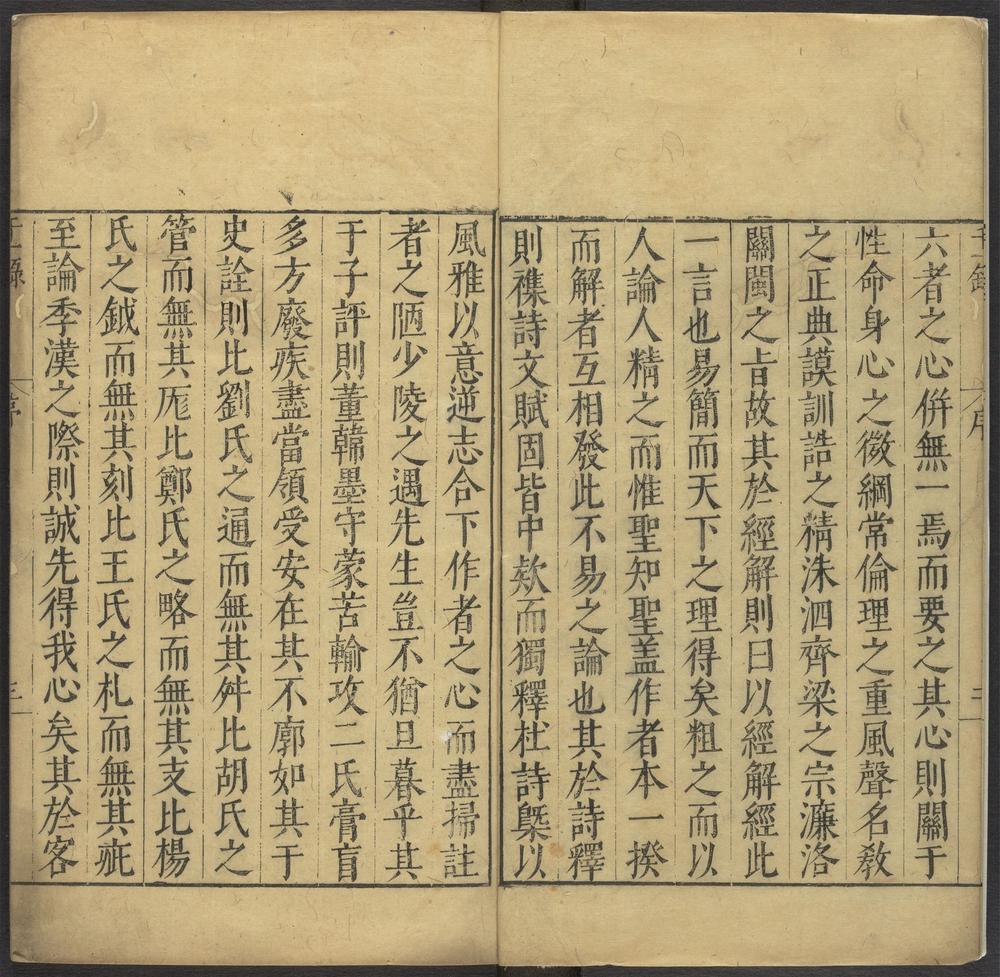 六者之心併無一焉而要之其心則關于
性命身心之微綱常倫理之重風聲名敎
之正典謨訓誥之精洙泗齊梁之宗濂洛
關閩之旨故其於經解則曰以經解經此
一言也易簡而天下之理得矣粗之而以
人論人精之而惟聖知聖盖作者本一揆
而解者互相發此不易之論也其於詩釋
則襍詩文賦固皆中欵而獨釋杜詩槩以
風雅以意逆志合下作者之心而盡掃註
者之陋少陵之遇先生豈不猶旦暮乎其
于子評則董韓墨守蒙苦輸攻二氏膏肓
多方廢疾盡當領受安在其不廓如其于
史詮則比劉氏之通而無其舛比胡氏之
管而無其厖比鄭氏之略而無其支比楊
氏之鉞而無其刻比王氏之札而無其疵
至論季漢之際則誠先得我心矣其於客
序
三